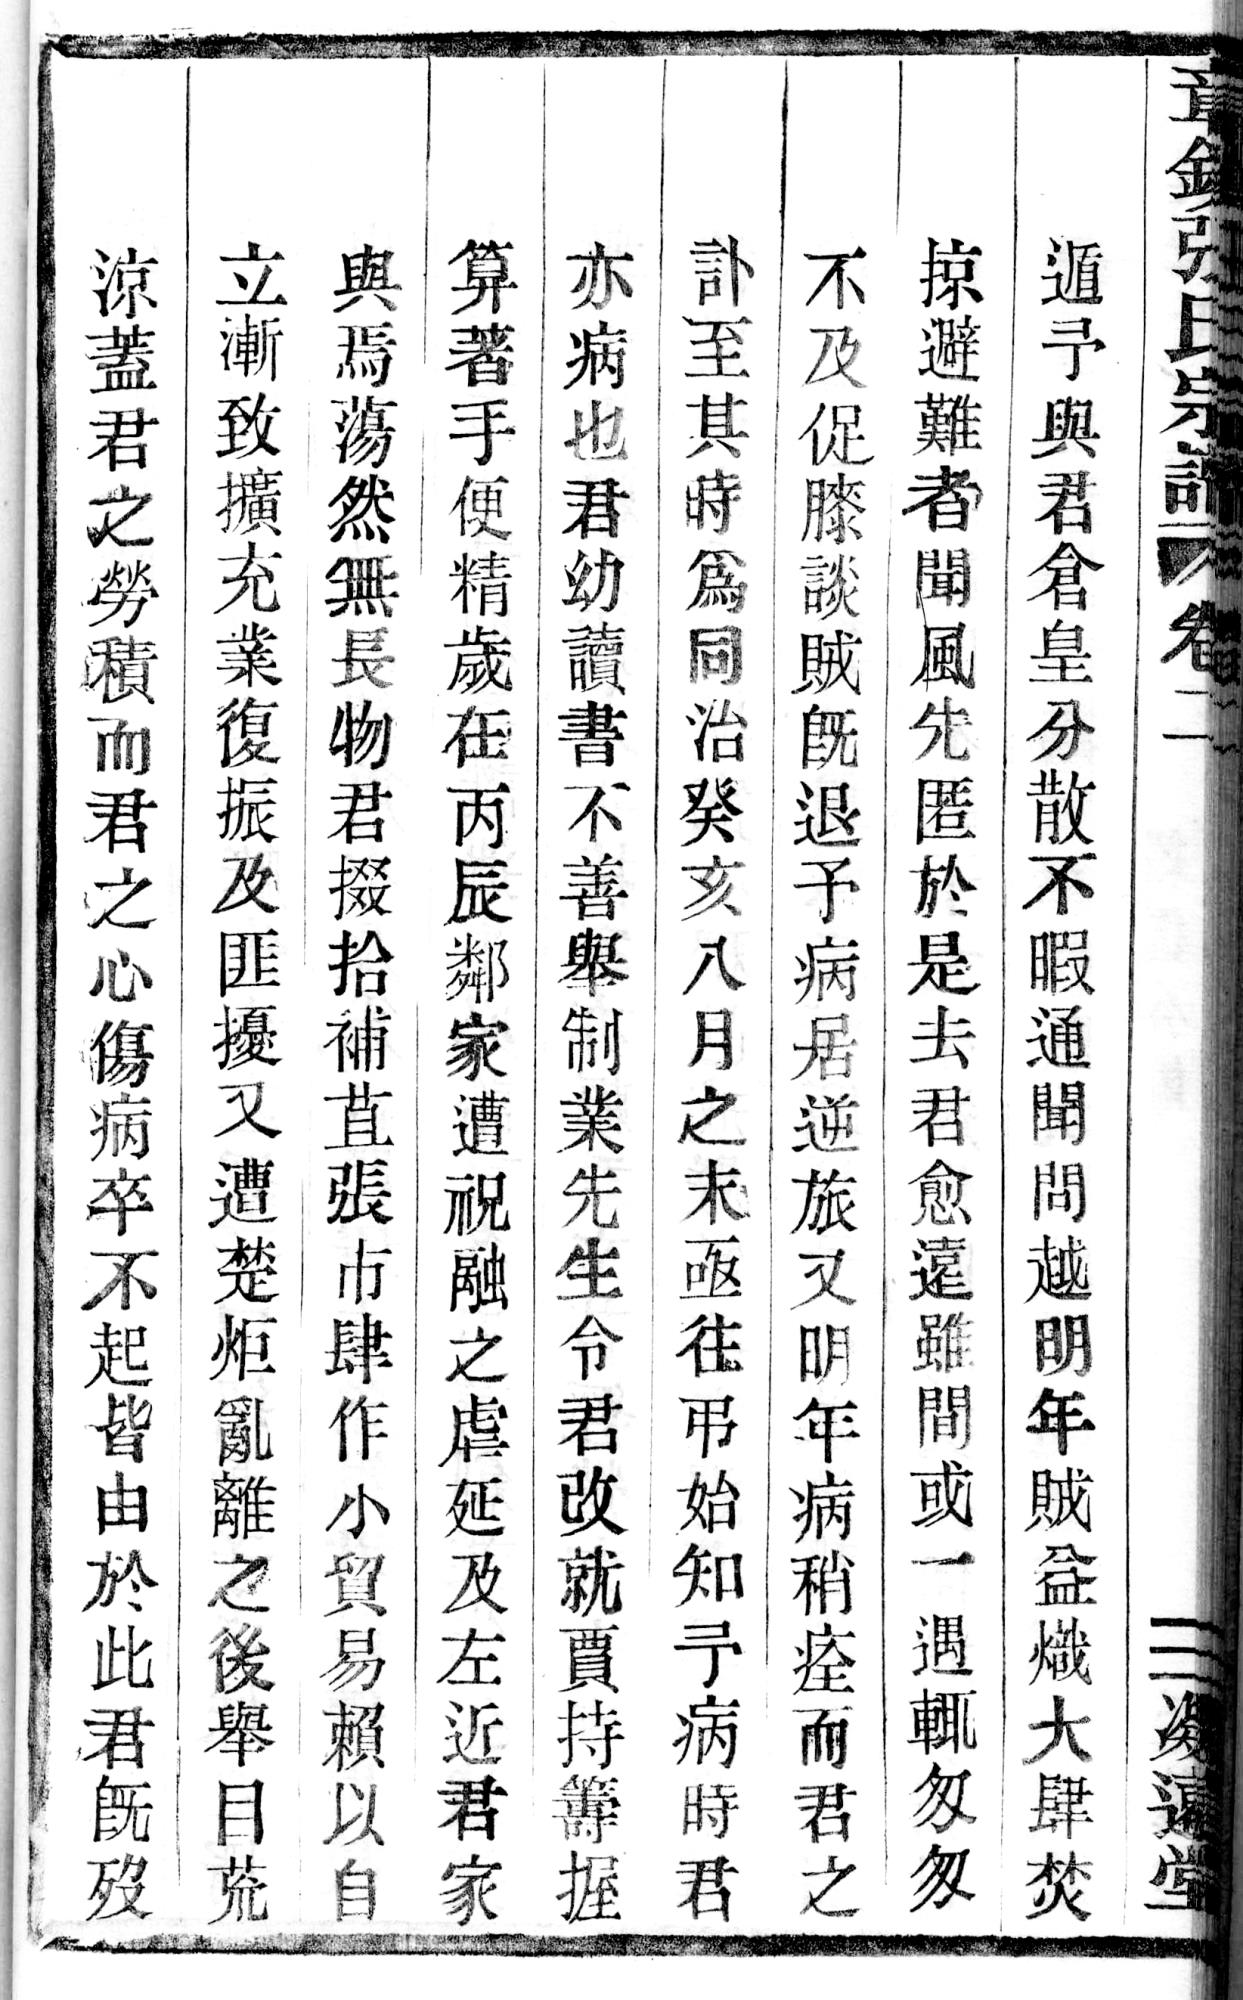 章鎮張氏宗譜 卷二
遁予與君倉皇分散不暇通聞問越明年賊益熾大肆焚
掠避難者聞風先匿於是去君愈遠雖間或一遇輒匆匆
不及促膝談賊既退予病居逆旅又明年病稍痊而君之
訃至其時爲同治癸亥八月之末亟往弔始知予病時君
亦病也君幼讀書不善舉制業先生令君改就賈持籌握
算著手便精歲在丙辰鄰家遭祝融之虐延及左近君家
與焉蕩然無長物君掇拾補苴張市肆作小貿易賴以自
立漸致擴充業復振及匪擾又遭楚炬亂離之後舉目荒
涼蓋君之勞積而君之心傷病卒不起皆由於此君既歿
遠堂